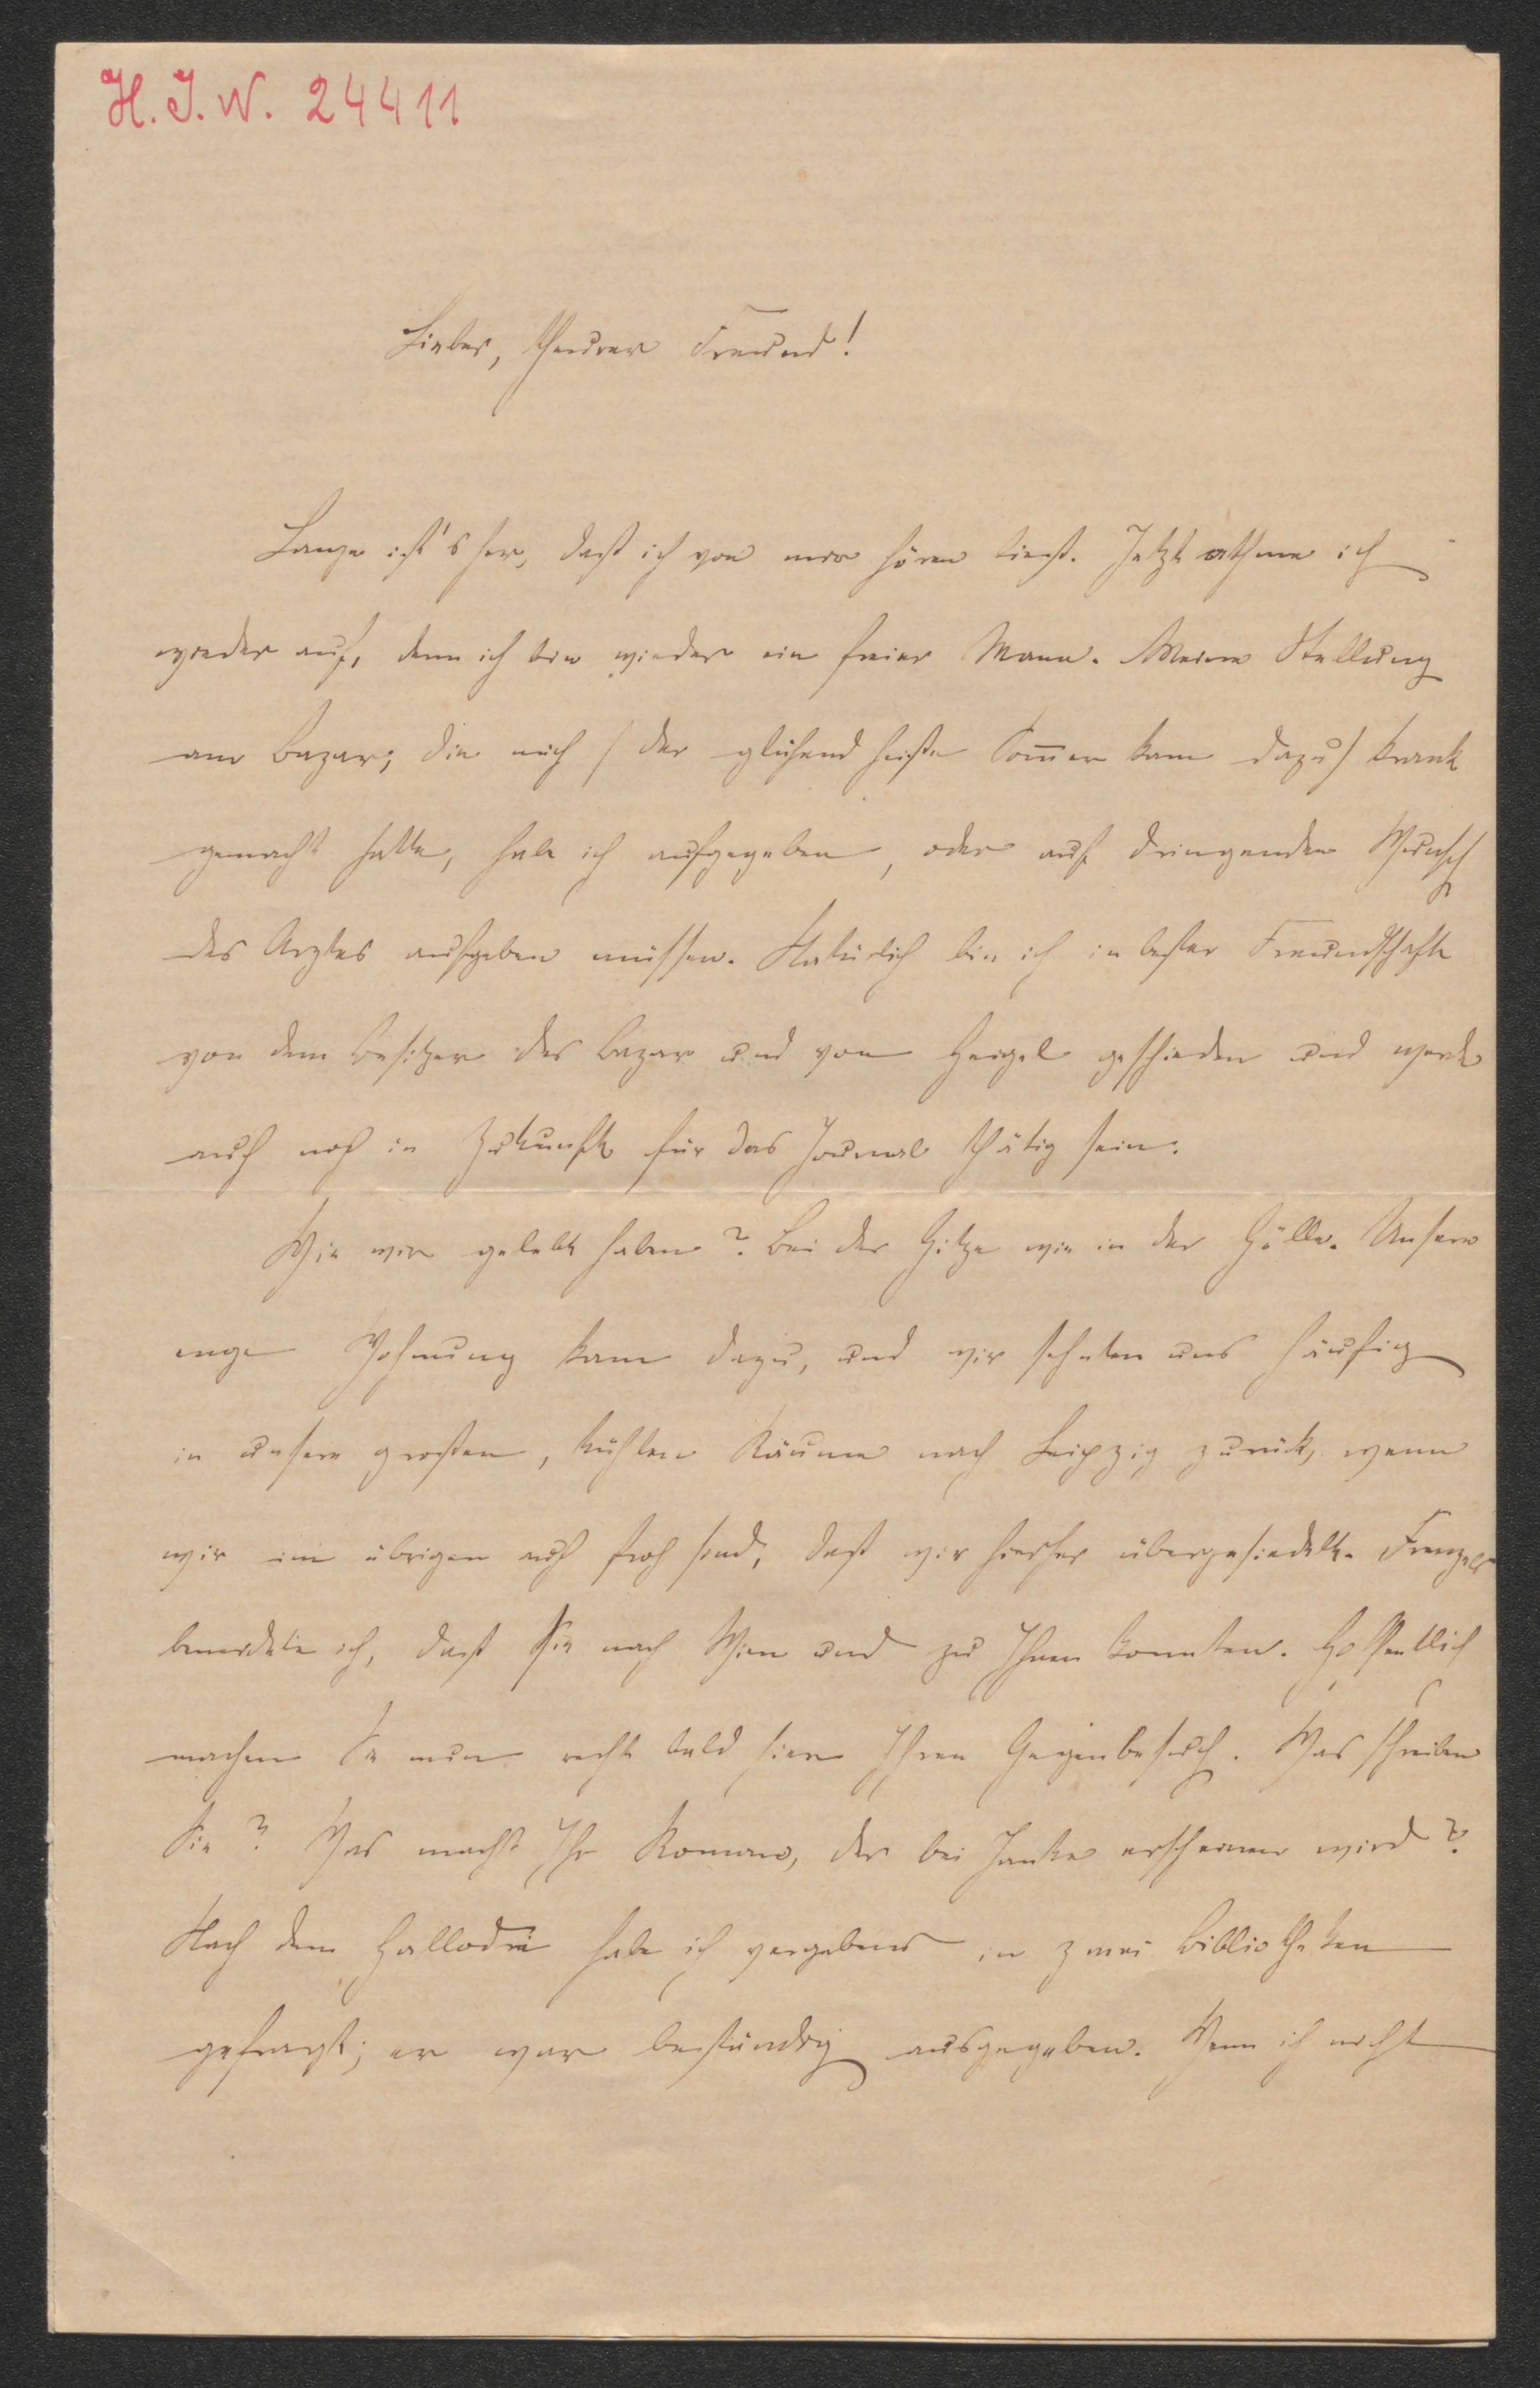 H. I. N. 24411
Lieber, theurer Freund!
Lange ist's her, daß ich von mir hören ließ. Jetzt athme ich
wieder auf, denn ich bin wieder ein freier Mann. Meine Stellung
am Bazar, die mich /der glühend heiße Som̅er kam dazu/ krank
gemacht hatte, habe ich aufgegeben, oder auf dringenden Wunsch
des Arztes aufgeben müssen. Natürlich bin ich in bester Freundschaft
von dem Besitzer des Bazar und von Heigel geschieden und werde
auch noch in Zukunft für das Journal thätig sein.
Wie wir gelebt haben? Bei der Hitze wie in der Hölle. Unsere
enge Wohnung kam dazu, und wir sehnten uns häufig
in unsere großen, kühlen Räume nach Leipzig zurück, wenn
wir im übrigen auch froh sind, daß wir hierher übergesiedelt. Frenzels
beneidete ich, daß Sie nach Wien und zu Ihnen konnten. Hoffentlich
machen Sie nun recht bald hier Ihren Gegenbesuch. Was schreiben
Sie? Was macht Ihr Roman, der bei Janke erscheinen wird?
Nach dem Hallodri habe ich vergebens in zwei Bibliotheken
gefragt; er war beständig ausgegeben. Wenn ich nicht